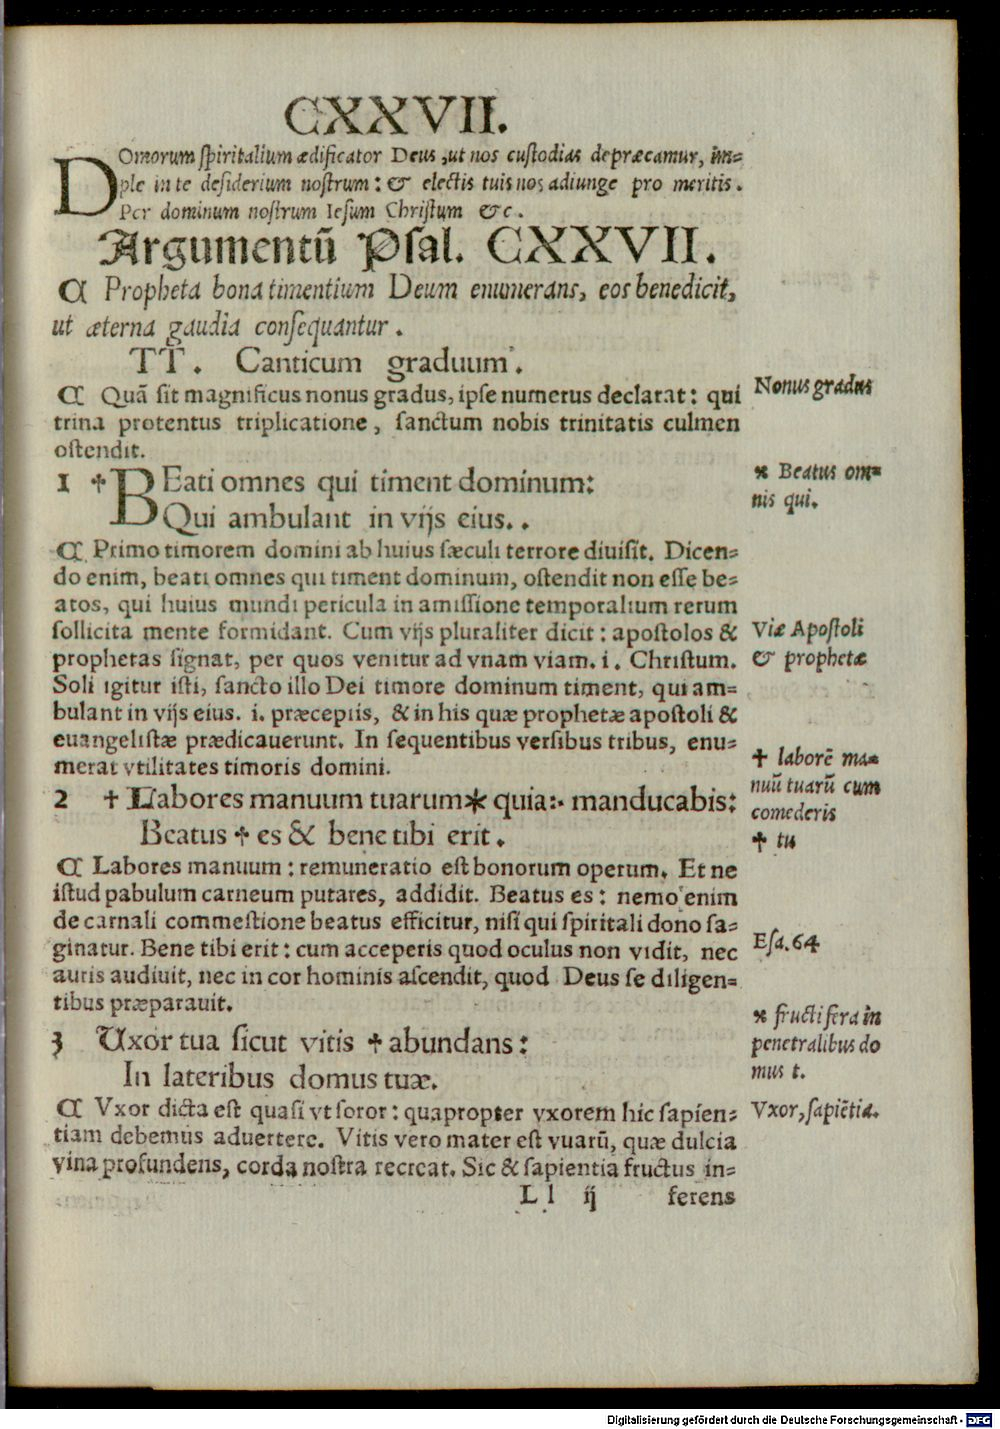 CXXVII.
DOmorum ſpiritalium ædificator Deus, ut nos cuſtodias depræcamur, im⸗
ple in te deſiderium noſtrum: & electis tuis nos adiunge pro meritis.
Per dominum noſtrum Ieſum Chriſtum &c.
Argumentū Pſal. CXXVII.
¶ Propheta bona timentium Deum enumerans, eos benedicit,
ut æterna gaudia conſequantur.
TT. Canticum graduum.
¶ Quā ſit magnificus nonus gradus, ipſe numerus declarat: qui
Nonus gradus
trina protentus triplicatione, ſanctum nobis trinitatis culmen
oſtendit.
1 ✝ BEati omnes qui timent dominum:
⁌ Beatus om⸗
nis qui.
Qui ambulant in vijs eius..
¶ Primo timorem domini ab huius ſæculi terrore diuiſit. Dicen⸗
do enim, beati omnes qui timent dominum, oſtendit non eſſe be⸗
atos, qui huius mundi pericula in amiſſione temporalium rerum
ſollicita mente formidant. Cum vijs pluraliter dicit: apoſtolos &
Viæ Apoſtoli
prophetas ſignat, per quos venitur ad vnam viam. i. Chriſtum.
& prophetæ
Soli igitur iſti, ſancto illo Dei timore dominum timent, qui am⸗
bulant in vijs eius. i. præceptis, & in his quæ prophetæ apoſtoli &
euangeliſtæ prædicauerunt. In ſequentibus verſibus tribus, enu⸗
merat vtilitates timoris domini.
✝ laborē ma⸗
nuū tuarū cum
comederis
2 ✝ Labores manuum tuarum* quia:· manducabis:
Beatus ✝ es & bene tibi erit.
✝ tu
¶ Labores manuum: remuneratio eſt bonorum operum. Et ne
iſtud pabulum carneum putares, addidit. Beatus es: nemo enim
de carnali commeſtione beatus efficitur, niſi qui ſpiritali dono ſa⸗
ginatur. Bene tibi erit: cum acceperis quod oculus non vidit, nec
Eſa. 64
auris audiuit, nec in cor hominis aſcendit, quod Deus ſe diligen⸗
tibus præparauit.
⁌ fructifera in
penetralibus do
mus t.
3 Uxor tua ſicut vitis ✝ abundans:
In lateribus domus tuæ.
¶ Vxor dicta eſt quaſi vt ſoror: quapropter vxorem hic ſapien⸗
Vxor, ſapiētia.
tiam debemus aduertere. Vitis vero mater eſt vuarū, quæ dulcia
vina profundens, corda noſtra recreat. Sic & ſapientia fructus in⸗
L l ij ferens
Digitalisierung gefördert durch die Deutsche Forschungsgemeinschaft - DFG